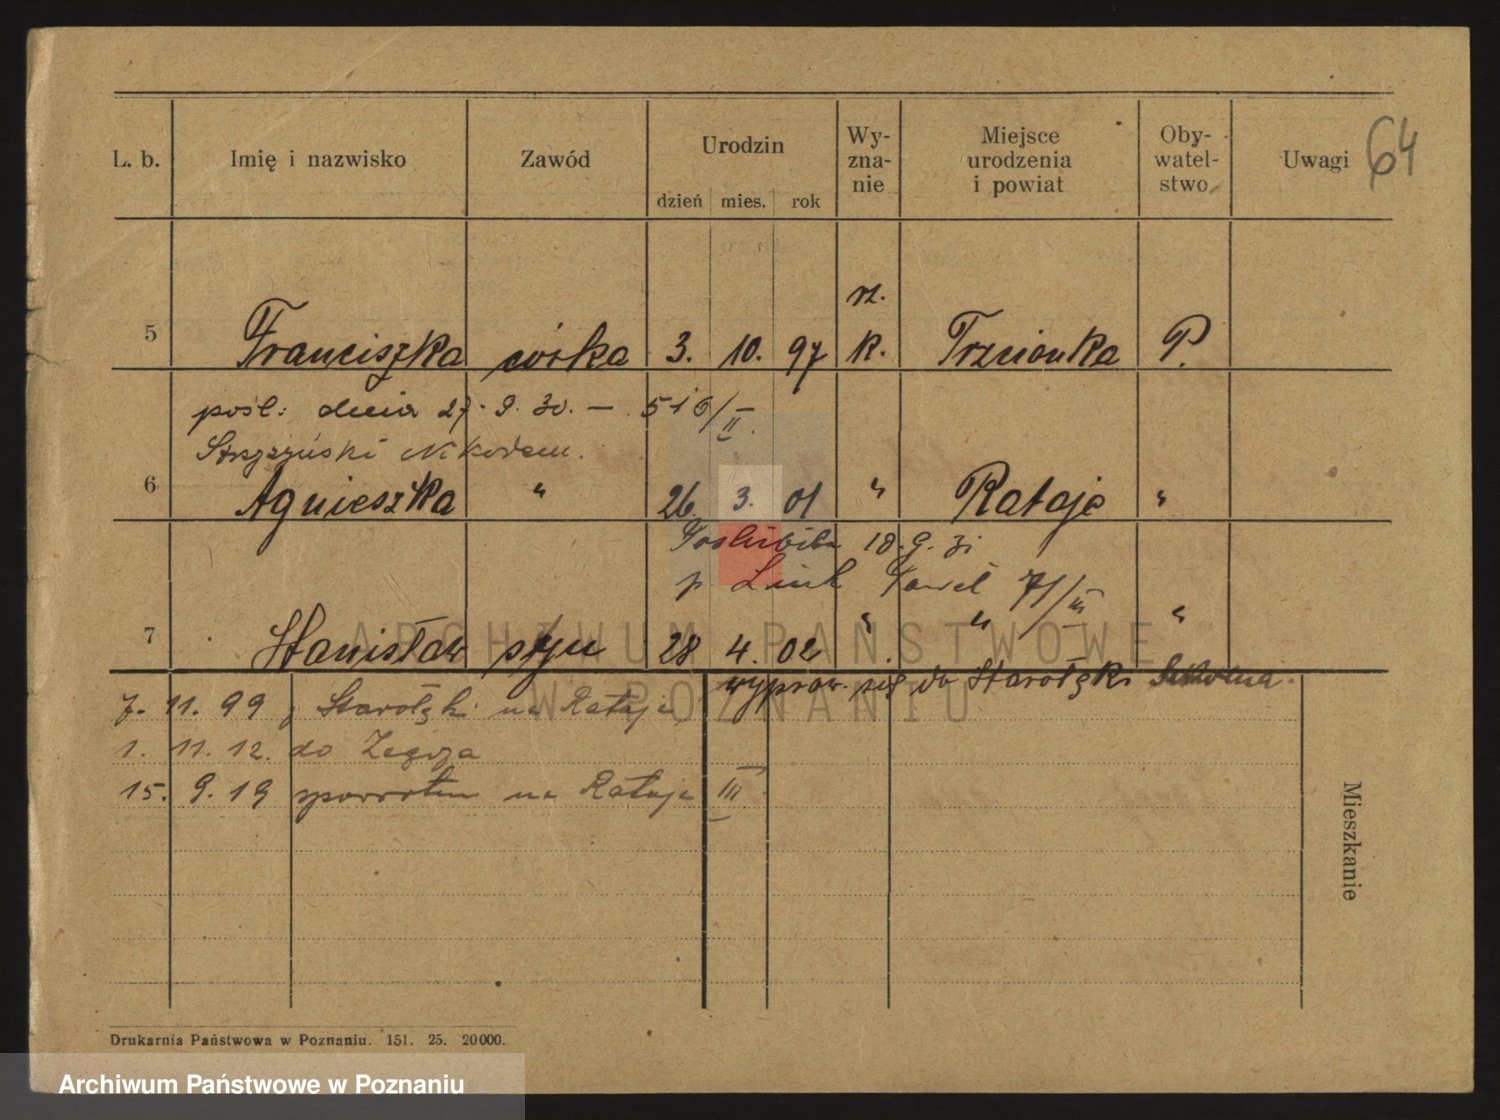 64
L. b. Imię i nazwisko Zawód Urodzin dzień mies. rok Wy-zna-nie Miejsce urodzenia i powiat Oby-watel-stwo Uwagi
rz.
5 Franciszka córka 3. 10. 97 k. Trzcionka P.
pośl: dnia 27. 9. 30. — 516/II.
Nikodem.
6 Agnieszka " 26. 3. 01 " Rataje "
Poślubiła 18. 9. 31
p. Paweł 71/III
7 Stanisław syn 28 4. 02 " " "
wyprow. się do Starołęki
7. 11. 99 z Starołęki na Rataje
1. 11. 12. do Zegrza
15. 9. 19 zpowrotem na Rataje III
Mieszkanie
ARCHIWUM PAŃSTWOWE
W POZNANIU
Drukarnia Państwowa w Poznaniu. 151. 25. 20000.
Archiwum Państwowe w Poznaniu